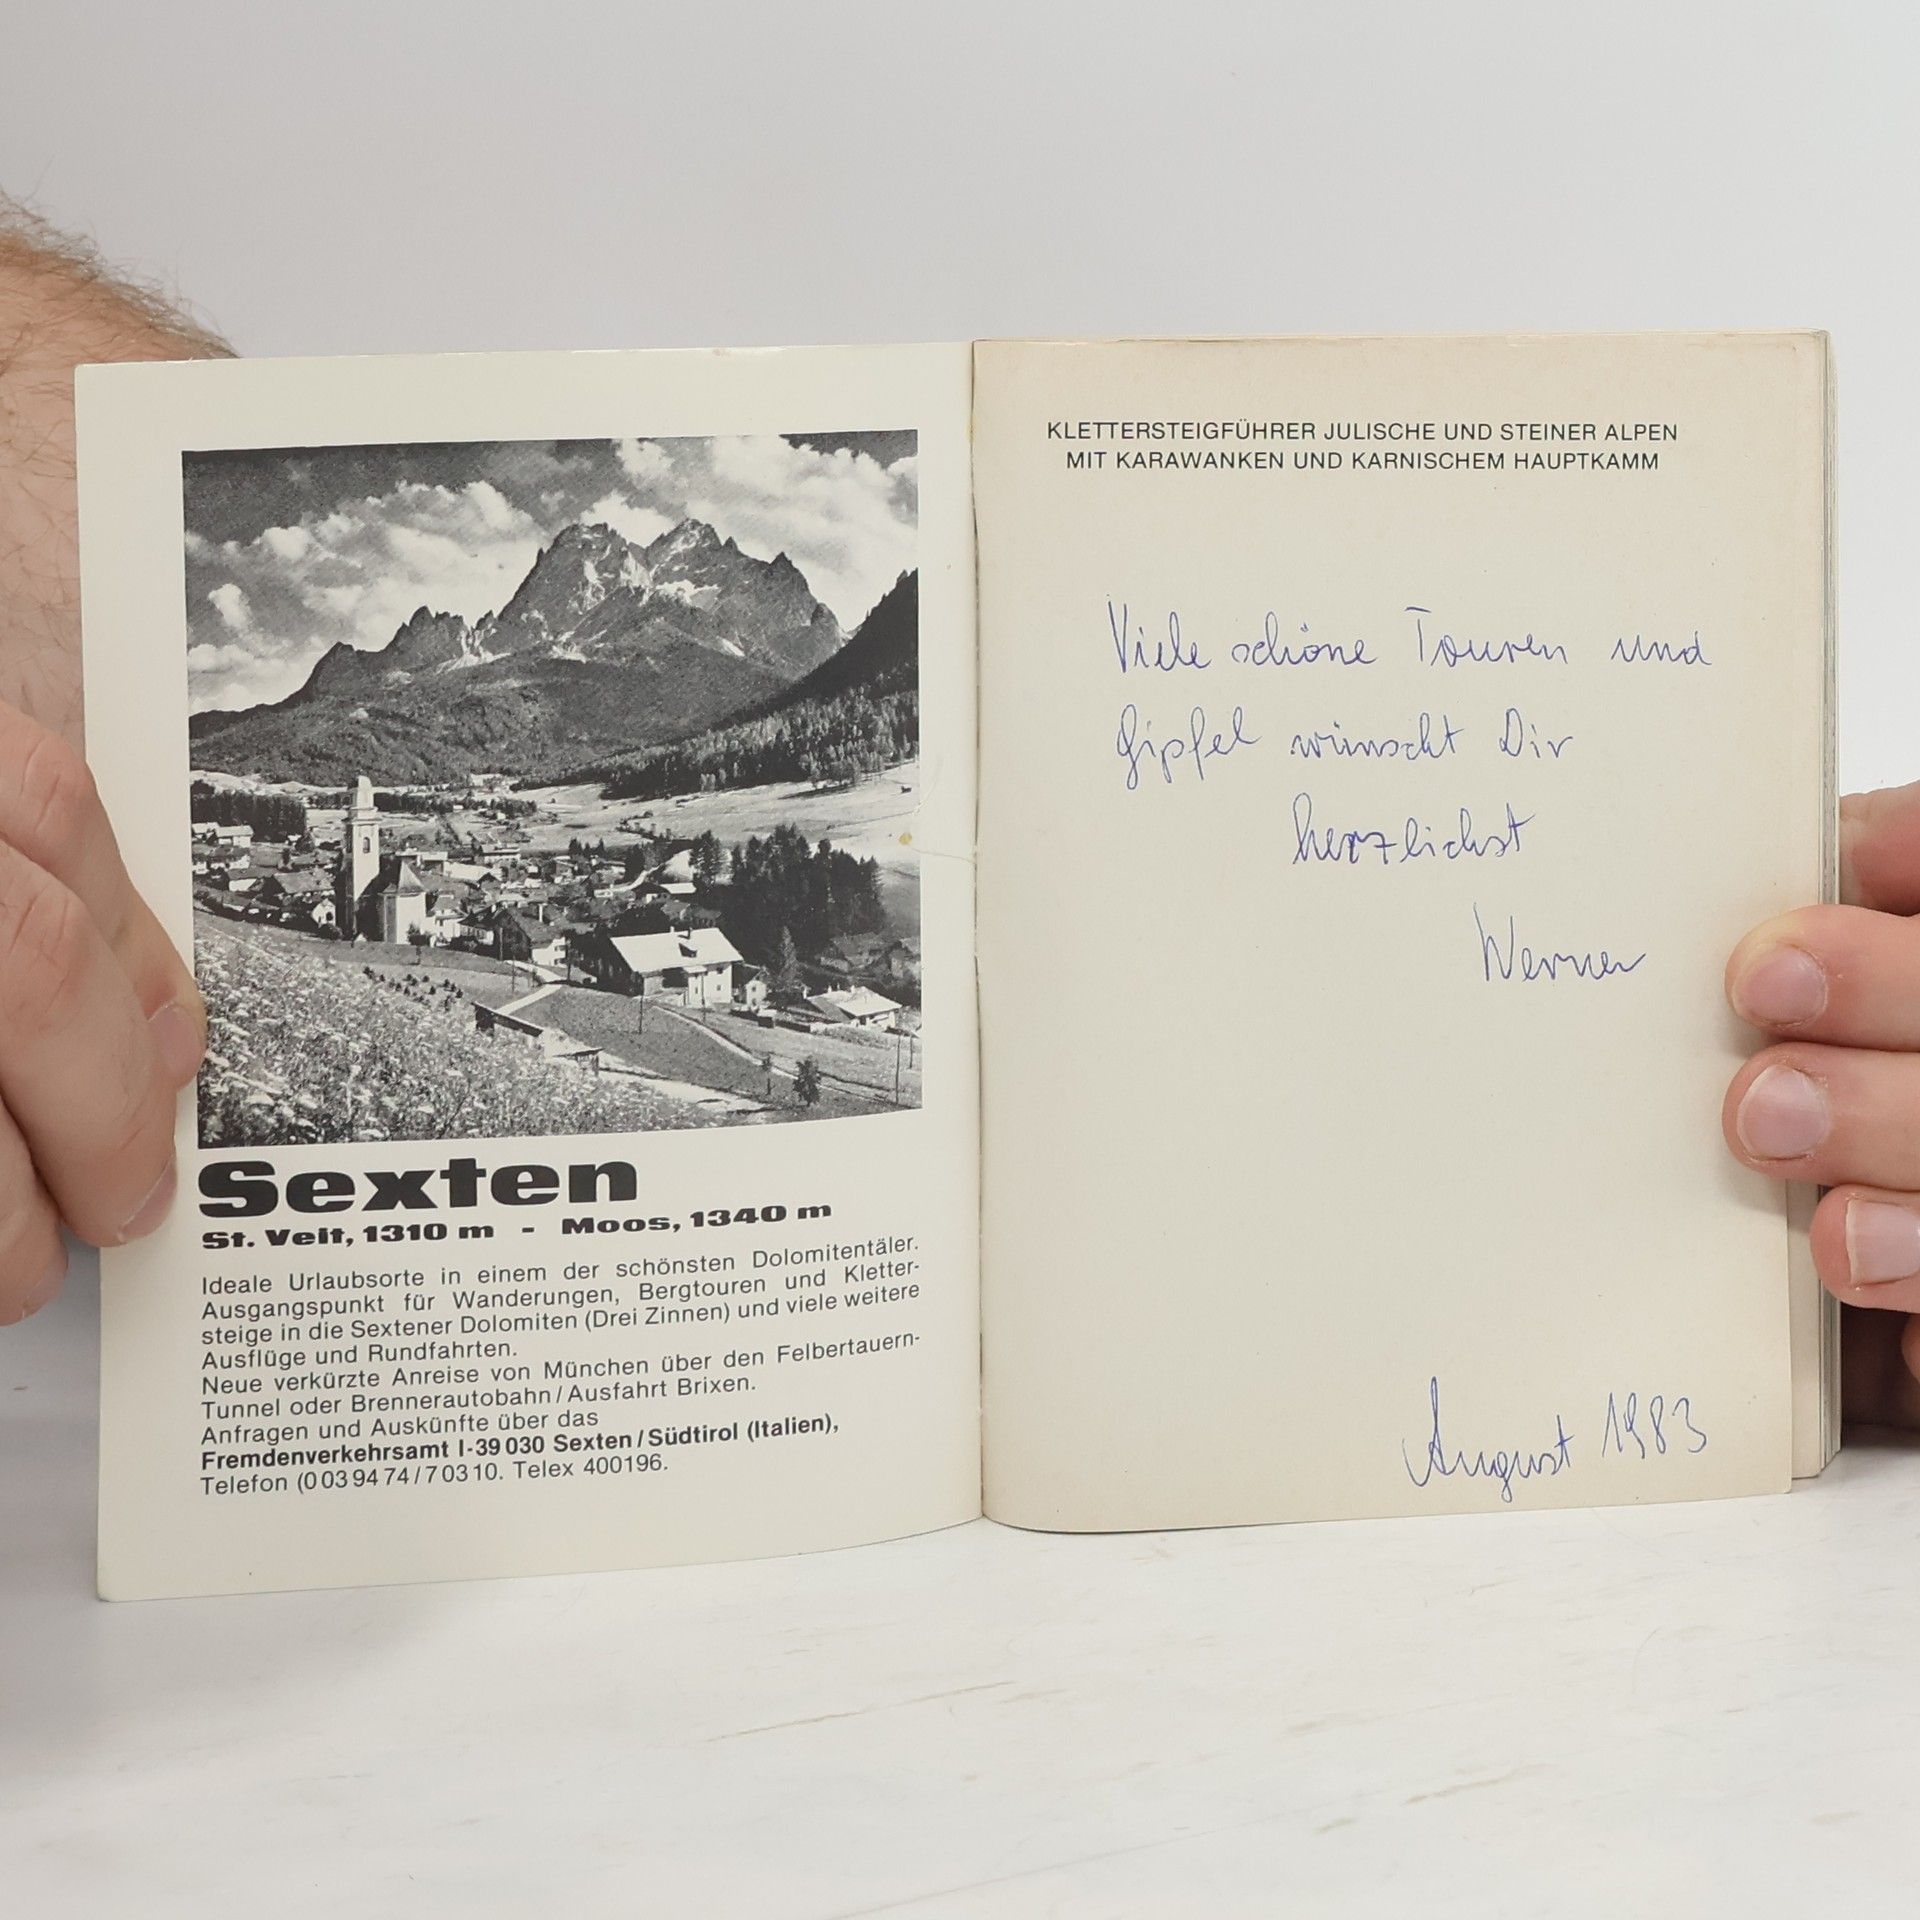 Sexten
St. Veit, 1310 m - Moos, 1340 m
Ideale Urlaubsorte in einem der schönsten Dolomitentäler.
Ausgangspunkt für Wanderungen, Bergtouren und Kletter-
steige in die Sextener Dolomiten (Drei Zinnen) und viele weitere
Ausflüge und Rundfahrten.
Neue verkürzte Anreise von München über den Felbertauern-
Tunnel oder Brennerautobahn/Ausfahrt Brixen.
Anfragen und Auskünfte über das
Fremdenverkehrsamt I-39030 Sexten/Südtirol (Italien),
Telefon (0039474/70310. Telex 400196.
KLETTERSTEIGFÜHRER JULISCHE UND STEINER ALPEN
MIT KARAWANKEN UND KARNISCHEM HAUPTKAMM
Viele schöne Touren und
Gipfel wünscht Dir
herzlichst
Werner
August 1983